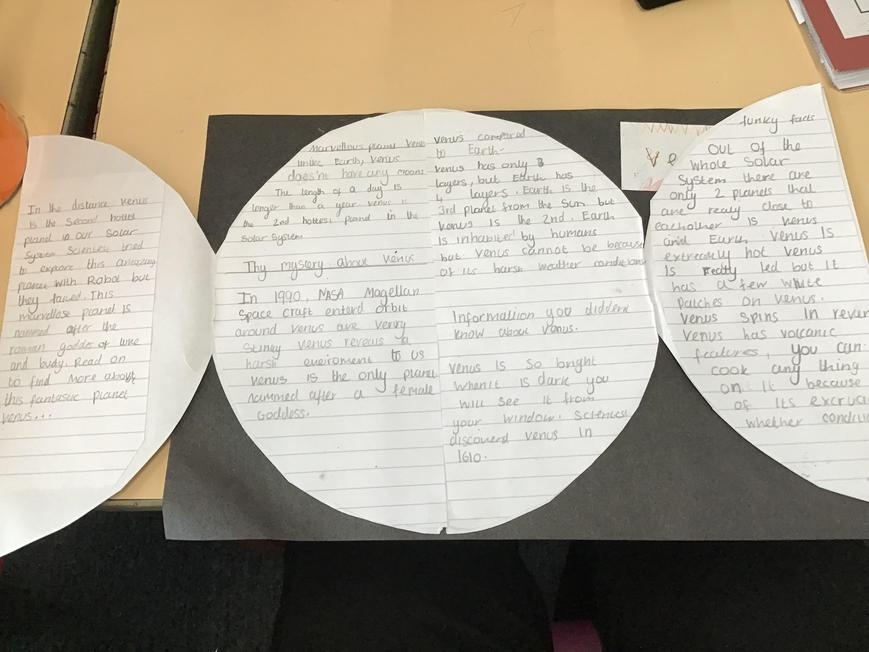 In the distance Venus
is the Second hottest
planet in our Solar
System Scientists tried
to explore this amazing
planet with Robot but
they failed. This
marvellose planet is
nammed after the
roman goddes of
and budy. Read on
to find more about
this fantastic planet
Venus...
Marvellous planet Venus
unlike Earth, Venus
doesn't have any moons
The length of a day is
longer than a year Venus is
the 2nd hottest planet in the
Solar System
Thy mystery about Venus
In 1990, NASA Magellan
Space craft enterd orbit
around Venus are Venry
Stincy Venus reveals a
harsh eneironment to us
Venus is the only planet
nammed after a female
Goddess.
Venus compared
to Earth-
Venus has only 3
layers, but Earth has
4 layers. Earth is the
3rd planet from the Sun but
Venus is the 2nd. Earth
is inhabited by humans
but Venus cannot be because
of its harsh weather conditions
Information you diddent
know about Vanus.
Venus is so bright
when it is dark you
will see it from
your window. Sciencest
discouerd Venus in
1610.
funky facts
Out of the
whole Solar
System there are
only 2 planets that
are realy close to
eachother is Venus
and Earth. Venus is
extreamly hot Venus
is Really led but it
has a few white
Patches on Venus.
Venus spins in rever
Venus has volcanic
features, you can
cook any thing
on it because
of its excrua
whether conditio
Ve